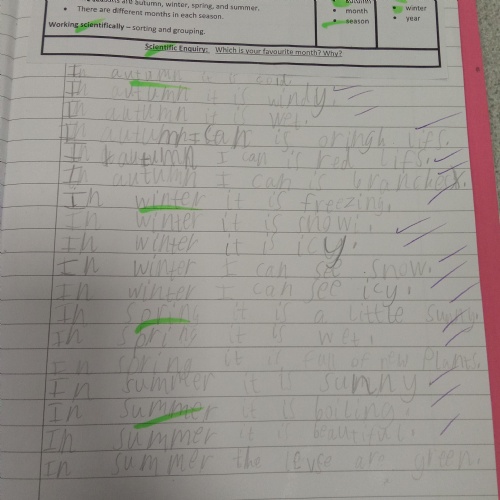 seasons are autumn, winter, spring, and summer.
• There are different months in each season.
Working scientifically – sorting and grouping.
• autumn
• month
• season
• winter
• year
Scientific Enquiry: Which is your favourite month? Why?
In autumn it is cold.
In autumn it is windy.
In autumn it is wet.
In autumn I can is oringh lifs.
In autumn I can is red lifs.
In autumn I can is branches.
In winter it is freezing.
In winter it is snowi.
In winter it is icy.
In winter I can see snow.
In winter I can see icy.
In spring it is a little sunn
In spring it is wet.
In spring it is full of new plants.
In summer it is sunny
In summer it is boiling.
In summer it is beautiful.
In summer the levse are green.